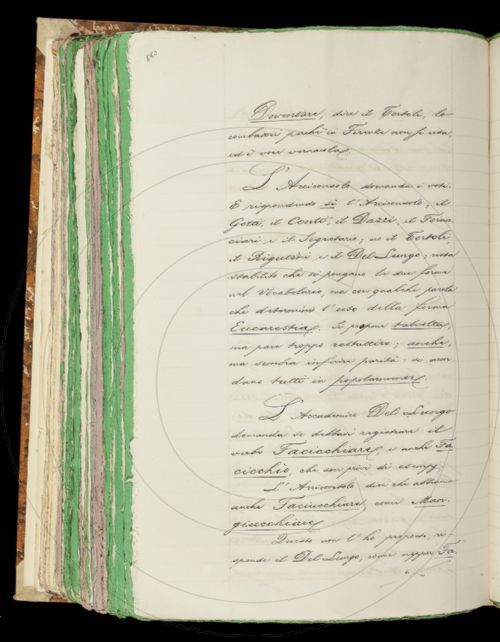 880
Doventare, dice il Tortoli, lo
combatterei perchè in Firenze non s'usa,
ed è voce vernacola.
L'Arciconsolo domanda i voti.
E rispondendo sì l'Arciconsolo, il
Gotti, il Conti, il Dazzi, il Forna
ciari e il Segretario; no il Tortoli,
il Rigutini e il Del Lungo; resta
stabilito che si pongano le due forme
nel Vocabolario, ma con qualche parola
che determini l'uso della forma
Eucarestia. Si propone talvolta,
ma pare troppo restrittivo; anche,
ma sembra inferire parità: si accor
dano tutti in popolarmente.
L'Accademico Del Lungo
domanda se debbasi registrare il
verbo Facicchiare, e anche Fa
cicchio, che son privi di esempj.
L'Arciconsolo dice che abbiamo
anche Faciucchiare, come Man-
giucchiare.
Questo non l'ho proposto, ri-
sponde il Del Lungo, come neppur Fa-